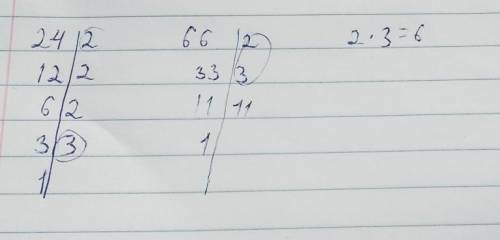 24 | 2 66 | 2 2 · 3 = 6
12 | 2 33 | 3
6 | 2 11 | 11
3 | 3 1
1